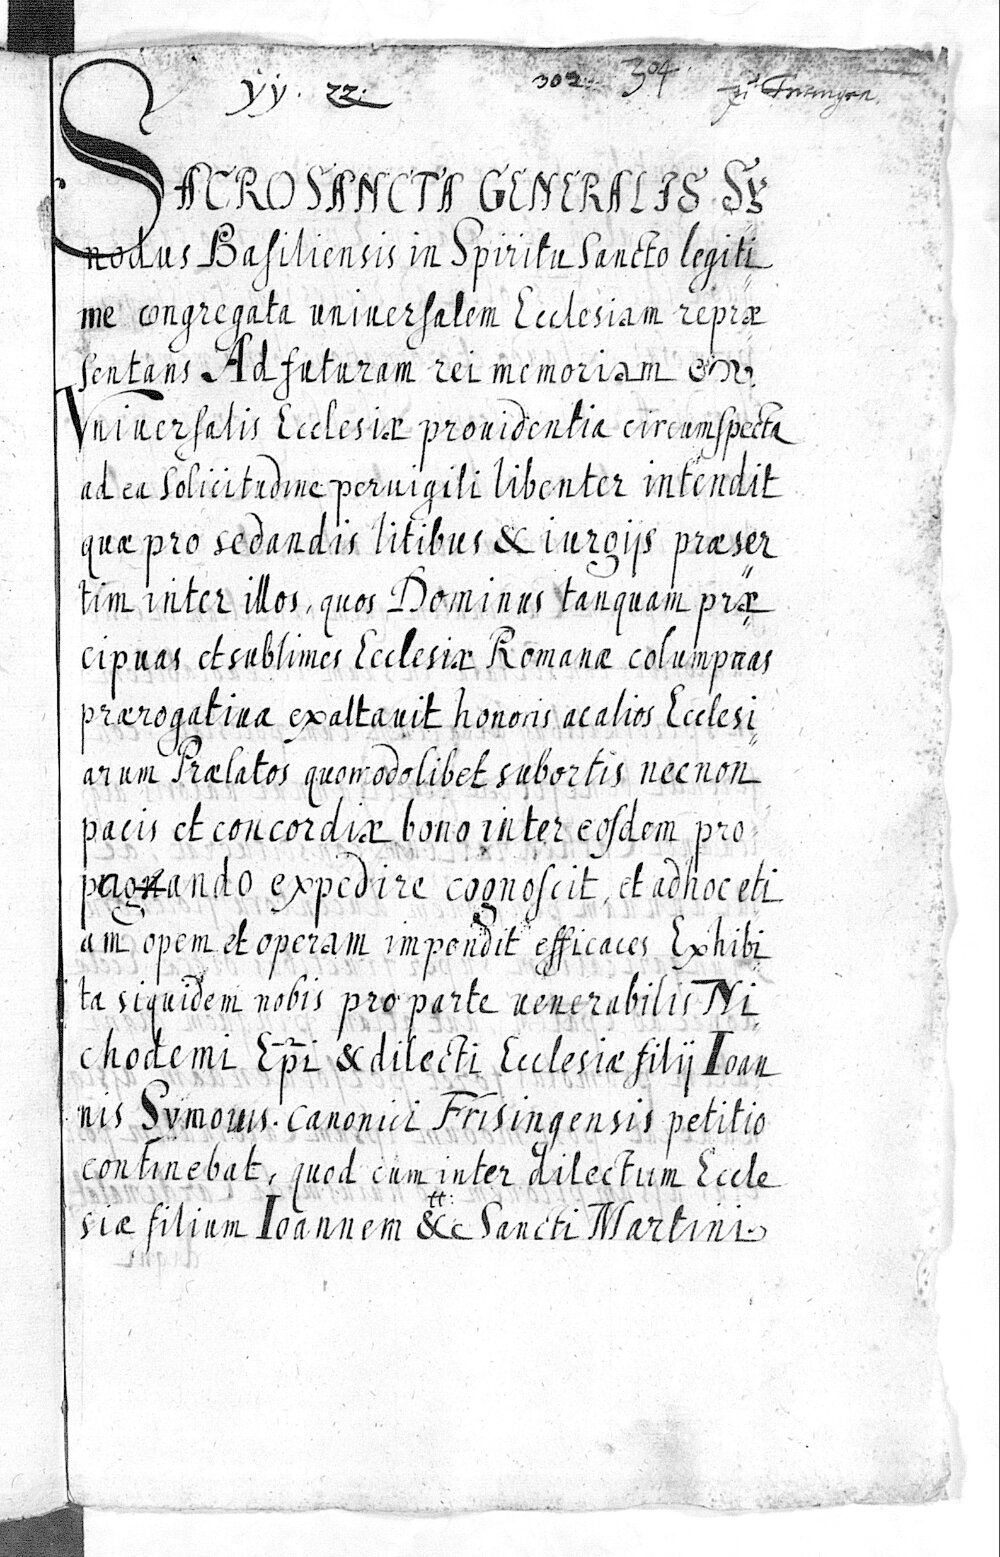 yy. 22. 302. 304
SACROSANCTA GENERALIS SY
nodus Basiliensis in Spiritu Sancto legiti
me congregata uniuersalem Ecclesiam repræ
sentans Ad futuram rei memoriam
Vniuersalis Ecclesiæ prouidentia circumspecta
ad ea solicitudine peruigili libenter intendit
quæ pro sedandis litibus & iurgijs præser
tim inter illos, quos Dominus tanquam præ
cipuas et sublimes Ecclesiæ Romanæ columpnas
prærogatiua exaltauit honoris ac alios Ecclesi
arum Prælatos quomodolibet subortis necnon
pacis et concordiæ bono inter eosdem pro
pagnando expedire cognoscit, et ad hoc eti
am opem et operam impendit efficaces Exhibi
ta siquidem nobis pro parte uenerabilis Ni
chodemi Epi & dilecti Ecclesiæ filij Ioan
nis Symonis. Canonici Frisingensis petitio
continebat, quod cum inter dilectum Eccle
siæ filium Ioannem tt: Sancti Martini